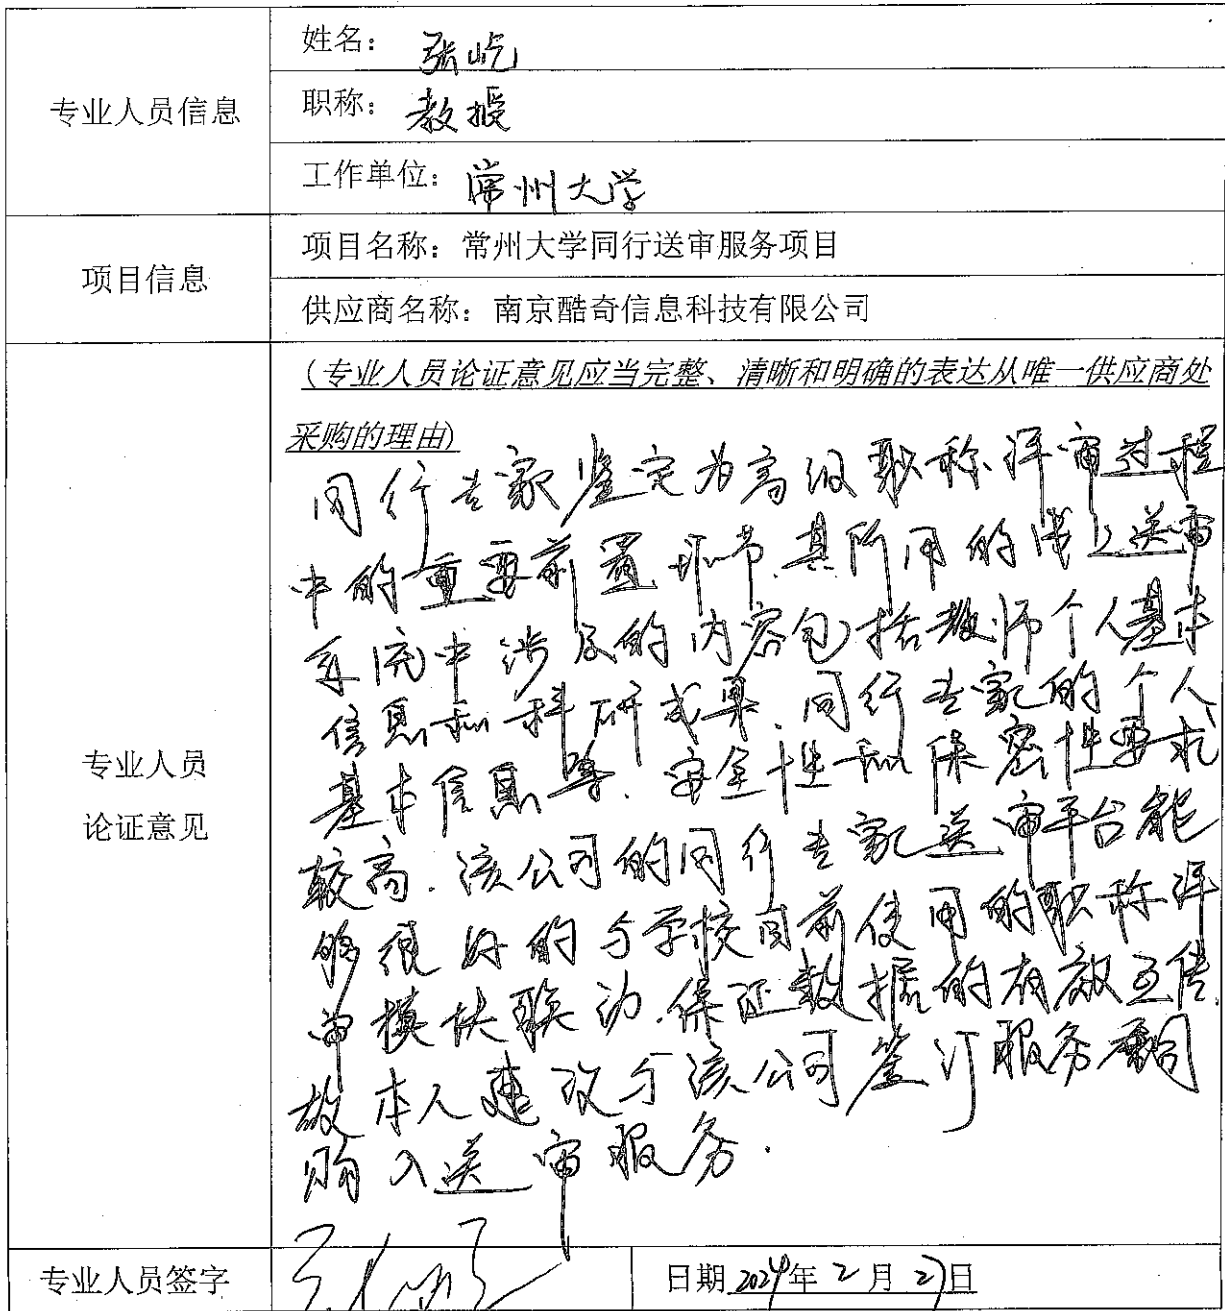 专业人员信息
姓名：张屹
职称：教授
工作单位：常州大学
项目信息
项目名称：常州大学同行送审服务项目
供应商名称：南京酷奇信息科技有限公司
专业人员
论证意见
（专业人员论证意见应当完整、清晰和明确的表达从唯一供应商处
采购的理由）
同行专家鉴定为高级职称评审过程
中的重要前置环节.其所用的线上送审
系统中涉及的内容包括教师个人基本
信息和科研成果.同行专家的个人
基本信息等.安全性和保密性要求
较高.该公司的同行专家送审平台能
够很好的与学校目前使用的职称评
审模块联动.保证数据的有效互传.
故本人建议与该公司签订服务合同
购入送审服务.
专业人员签字
张屹
日期 2024年 2 月 27日